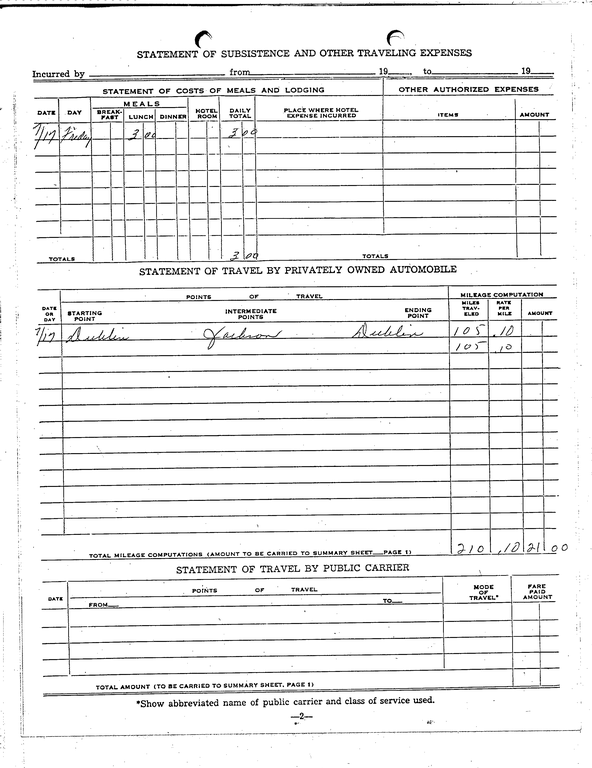 STATEMENT OF SUBSISTENCE AND OTHER TRAVELING EXPENSES
Incurred by from 19 , to 19
STATEMENT OF COSTS OF MEALS AND LODGING OTHER AUTHORIZED EXPENSES
DATE DAY MEALS HOTEL ROOM DAILY TOTAL PLACE WHERE HOTEL EXPENSE INCURRED ITEMS AMOUNT
BREAK-FAST LUNCH DINNER
7/17 Friday 3 00 3 00
TOTALS 3 00 TOTALS
STATEMENT OF TRAVEL BY PRIVATELY OWNED AUTOMOBILE
DATE OR DAY POINTS OF TRAVEL MILEAGE COMPUTATION
STARTING POINT INTERMEDIATE POINTS ENDING POINT MILES TRAV-ELED RATE PER MILE AMOUNT
7/17 Dublin Jackson Dublin 105 .10
105 .10
TOTAL MILEAGE COMPUTATIONS (AMOUNT TO BE CARRIED TO SUMMARY SHEET—PAGE 1) 210 .10 21 00
STATEMENT OF TRAVEL BY PUBLIC CARRIER
DATE POINTS OF TRAVEL MODE OF TRAVEL* FARE PAID AMOUNT
FROM— TO—
TOTAL AMOUNT (TO BE CARRIED TO SUMMARY SHEET, PAGE 1)
*Show abbreviated name of public carrier and class of service used.
—2—